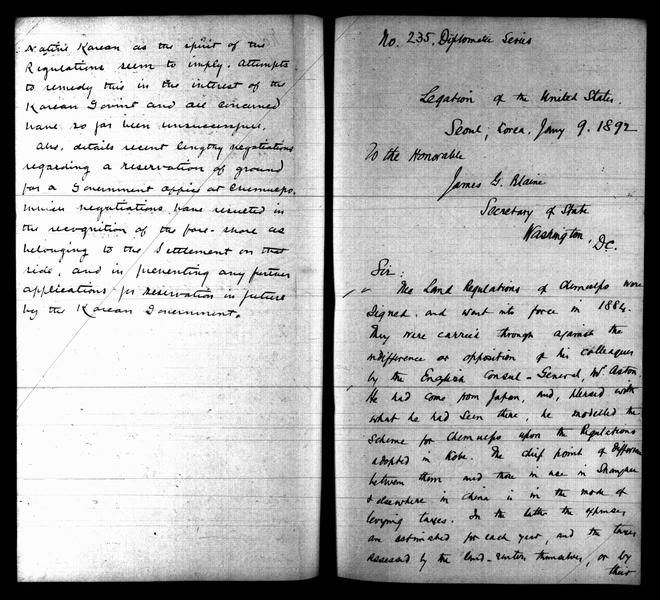 Native Korean as the spirit of the
Regulations seem to imply. Attempts
to remedy this in the interest of the
Korean Govmt and all concerned
have so far been unsuccessful.
Also, details recent lengthy negotiations
regarding a reservation of ground
for a Government office at Chemulpo,
which negotiations have resulted in
the recognition of the fore-shore as
belonging to the Settlement on that
side, and in preventing any further
applications for reservation in future
by the Korean Government.
No. 235. Diplomatic Series
Legation of the United States.
Seoul, Corea, Jany 9. 1892
To the Honorable
James G. Blaine
Secretary of State
Washington, D.C.
Sir:
The Land Regulations of Chemulpo were
signed, and went into force in 1884.
They were carried through against the
indifference or opposition of his colleagues
by the English Consul-General, Mr. Aston.
He had come from Japan, and, pleased with
what he had seen there, he modelled the
scheme for Chemulpo upon the Regulations
adopted in Kobe. The chief point of difference
between them and those in use in Shanghai
& elsewhere in China is in the mode of
levying taxes. In the latter the expenses
are estimated for each year, and the taxes
assessed by the land-renters themselves, or by
their